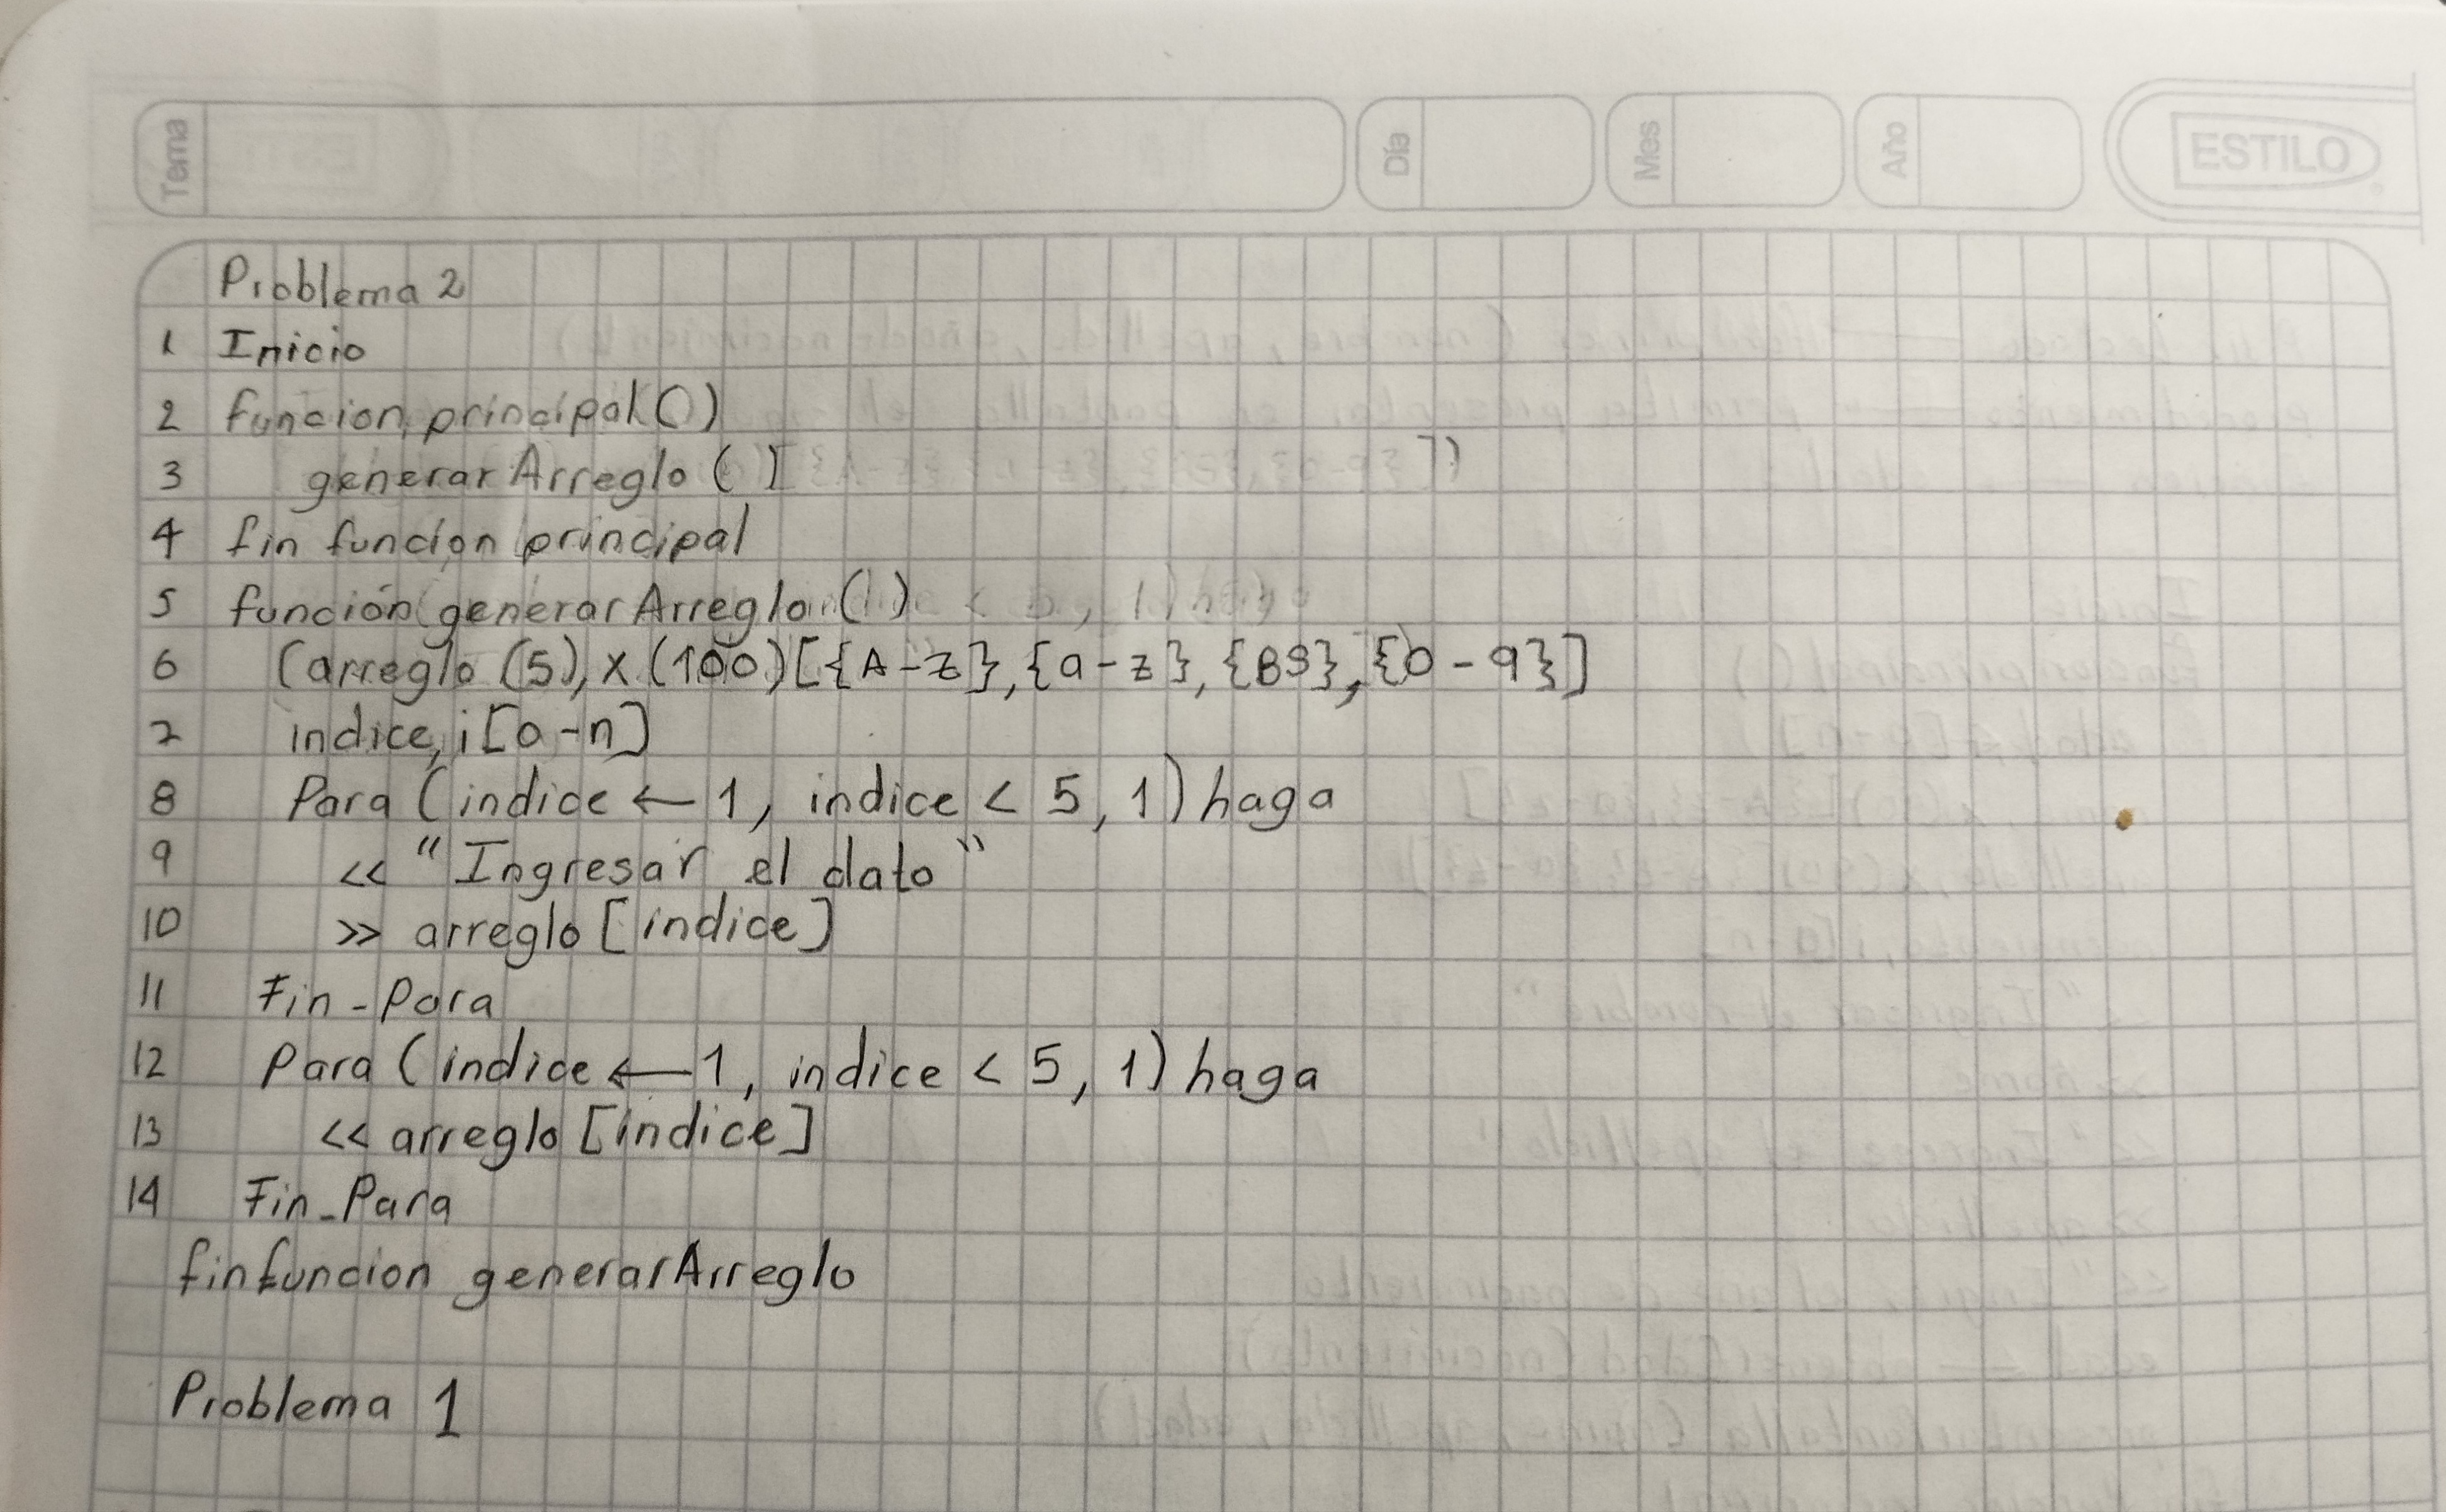 Tema Día Mes Año ESTILO
Problema 2
1 Inicio
2 funcion principal ()
3 generar Arreglo ( )
4 fin funcion principal
5 función generar Arreglo ( )
6 (arreglo (5), x (100) [{A-z}, {a-z}, {BS}, {0-9}]
7 indice, i [0-n]
8 Para (indice ← 1, indice < 5, 1) haga
9 << "Ingresar el dato"
10 >> arreglo [indice]
11 Fin - Para
12 Para (indice ← 1, indice < 5, 1) haga
13 << arreglo [indice]
14 Fin_Para
finfuncion generarArreglo
Problema 1